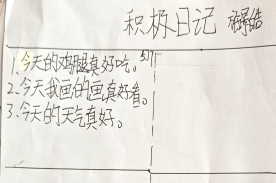 积极日记
1、今天的鸡腿真好吃。
2、今天我画的画真好看。
3、今天的天气真好。